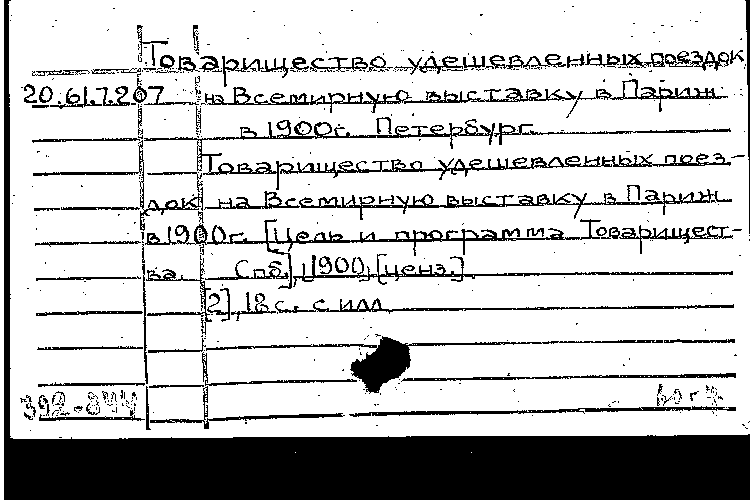 Товарищество удешевленных поездок
20.61.7.207 на Всемирную выставку в Париж
в 1900г. Петербург.
Товарищество удешевленных поез-
док на Всемирную выставку в Париж
в 1900г. [Цель и программа Товарищест-
ва. Спб], [1900] [ценз.]
[2], 18 с. с илл.
392-844